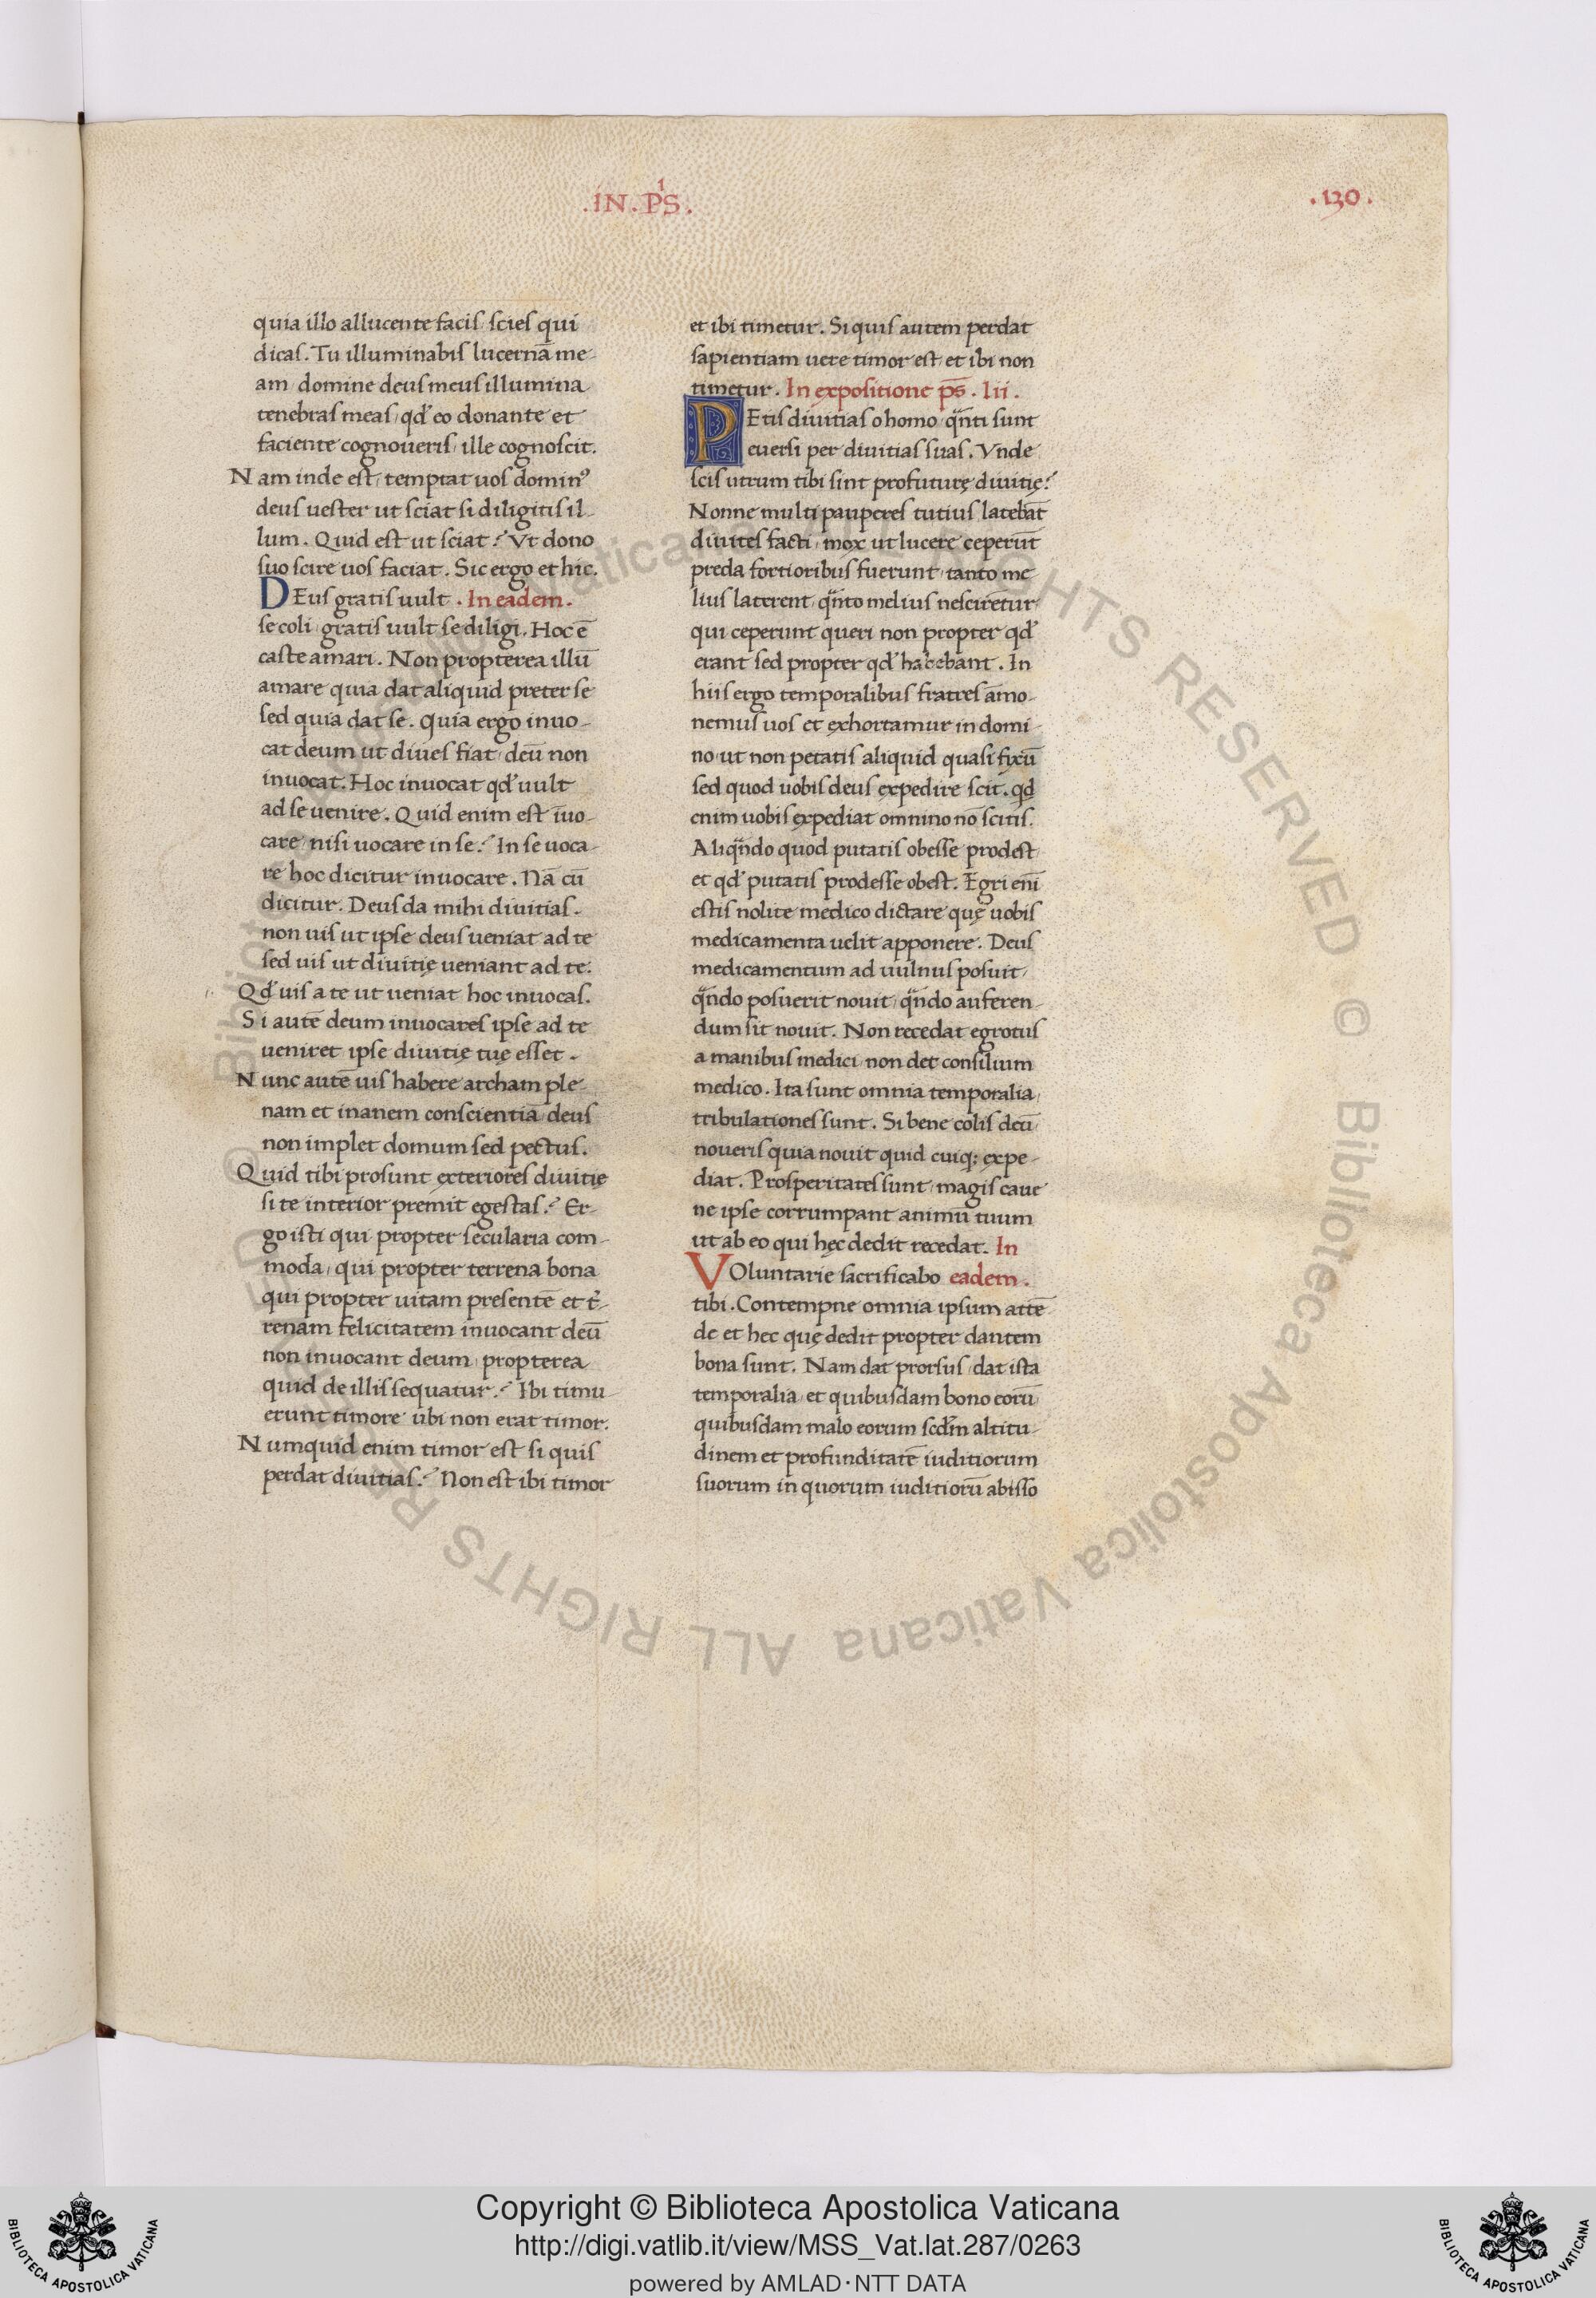 .IN.PS.
.130.
quia illo allucente facis scies qui
dicas. Tu illuminabis lucernā me-
am domine deus meus illumina
tenebras meas, qđ eo donante et
faciente cognoveris, ille cognoscit.
Nam inde est, temptat uos dominꝰ
deus uester ut sciat si diligitis il-
lum. Quid est ut sciat? Vt dono
suo scire uos faciat. Sic ergo et hic.
DEus gratis uult. In eadem.
se coli, gratis uult se diligi. Hoc ē
caste amari. Non propterea illū
amare quia dat aliquid preter se
sed quia dat se. Quia ergo inuo-
cat deum ut diues fiat, deū non
inuocat. Hoc inuocat qđ uult
ad se uenire. Quid enim est īuo-
care, nisi uocare in se? In se uoca-
re hoc dicitur inuocare. Nā cū
dicitur. Deus da mihi diuitias.
non uis ut ipse deus ueniat ad te
sed uis ut diuitię ueniant ad te.
Qđ uis a te ut ueniat hoc inuocas.
Si autē deum inuocares ipse ad te
ueniret, ipse diuitię tuę esset.
Nunc autē uis habere archam ple-
nam et inanem conscientiā, deus
non implet domum sed pectus.
Quid tibi prosunt exteriores diuitię
si te interior premit egestas? Er-
go isti qui propter secularia com-
moda, qui propter terrena bona
qui propter uitam presentē et t̉-
renam felicitatem inuocant deū
non inuocant deum, propterea
quid de illis sequatur? Ibi timu-
erunt timore ubi non erat timor.
Numquid enim timor est si quis
perdat diuitias? Non est ibi timor
et ibi timetur. Si quis autem perdat
sapientiam uere timor est, et ibi non
timetur. In expositione ps̄. lii.
PEtis diuitias o homo, qn̄ti sunt
euersi per diuitias suas. Vnde
scis utrum tibi sint profuturę diuitię?
Nonne multi pauperes tutius latebāt
diuites facti, mox ut lucere ceperūt
preda fortioribus fuerunt, tanto me
lius laterent, qn̄to melius nescirētur
qui ceperunt queri non propter qđ
erant sed propter qđ habebant. In
hiis ergo temporalibus fratres amo-
nemus uos et exhortamur in domi-
no, ut non petatis aliquid quasi fixū
sed quod uobis deus expedire scit. qd
enim uobis expediat omnino nō scitis.
Aliqn̄do quod putatis obesse prodest
et qđ putatis prodesse obest. Egri enī
estis nolite medico dictare quę uobis
medicamenta uelit apponere. Deus
medicamentum ad uulnus posuit,
qn̄do posuerit nouit, qn̄do auferen-
dum sit nouit. Non recedat egrotus
a manibus medici, non det consilium
medico. Ita sunt omnia temporalia,
tribulationes sunt. Si bene colis deū,
noueris quia nouit quid cuiq; expe-
diat. Prosperitates sunt, magis caue
ne ipse corrumpant animū tuum
ut ab eo qui hęc dedit recedat. In
VOluntarie sacrificabo eadem.
tibi. Contempne omnia ipsum attē-
de et hec quę dedit propter dantem
bona sunt. Nam dat prorsus, dat ista
temporalia, et quibusdam bono eorū,
quibusdam malo eorum scđm altitu-
dinem et profunditatē iuditiorum
suorum in quorum iuditiorū abisso
© Biblioteca Apostolica Vaticana ALL RIGHTS RESERVED © Biblioteca Apostolica Vaticana ALL RIGHTS RESERVED
Copyright © Biblioteca Apostolica Vaticana
http://digi.vatlib.it/view/MSS_Vat.lat.287/0263
powered by AMLAD·NTT DATA
BIBLIOTECA APOSTOLICA VATICANA
BIBLIOTECA APOSTOLICA VATICANA